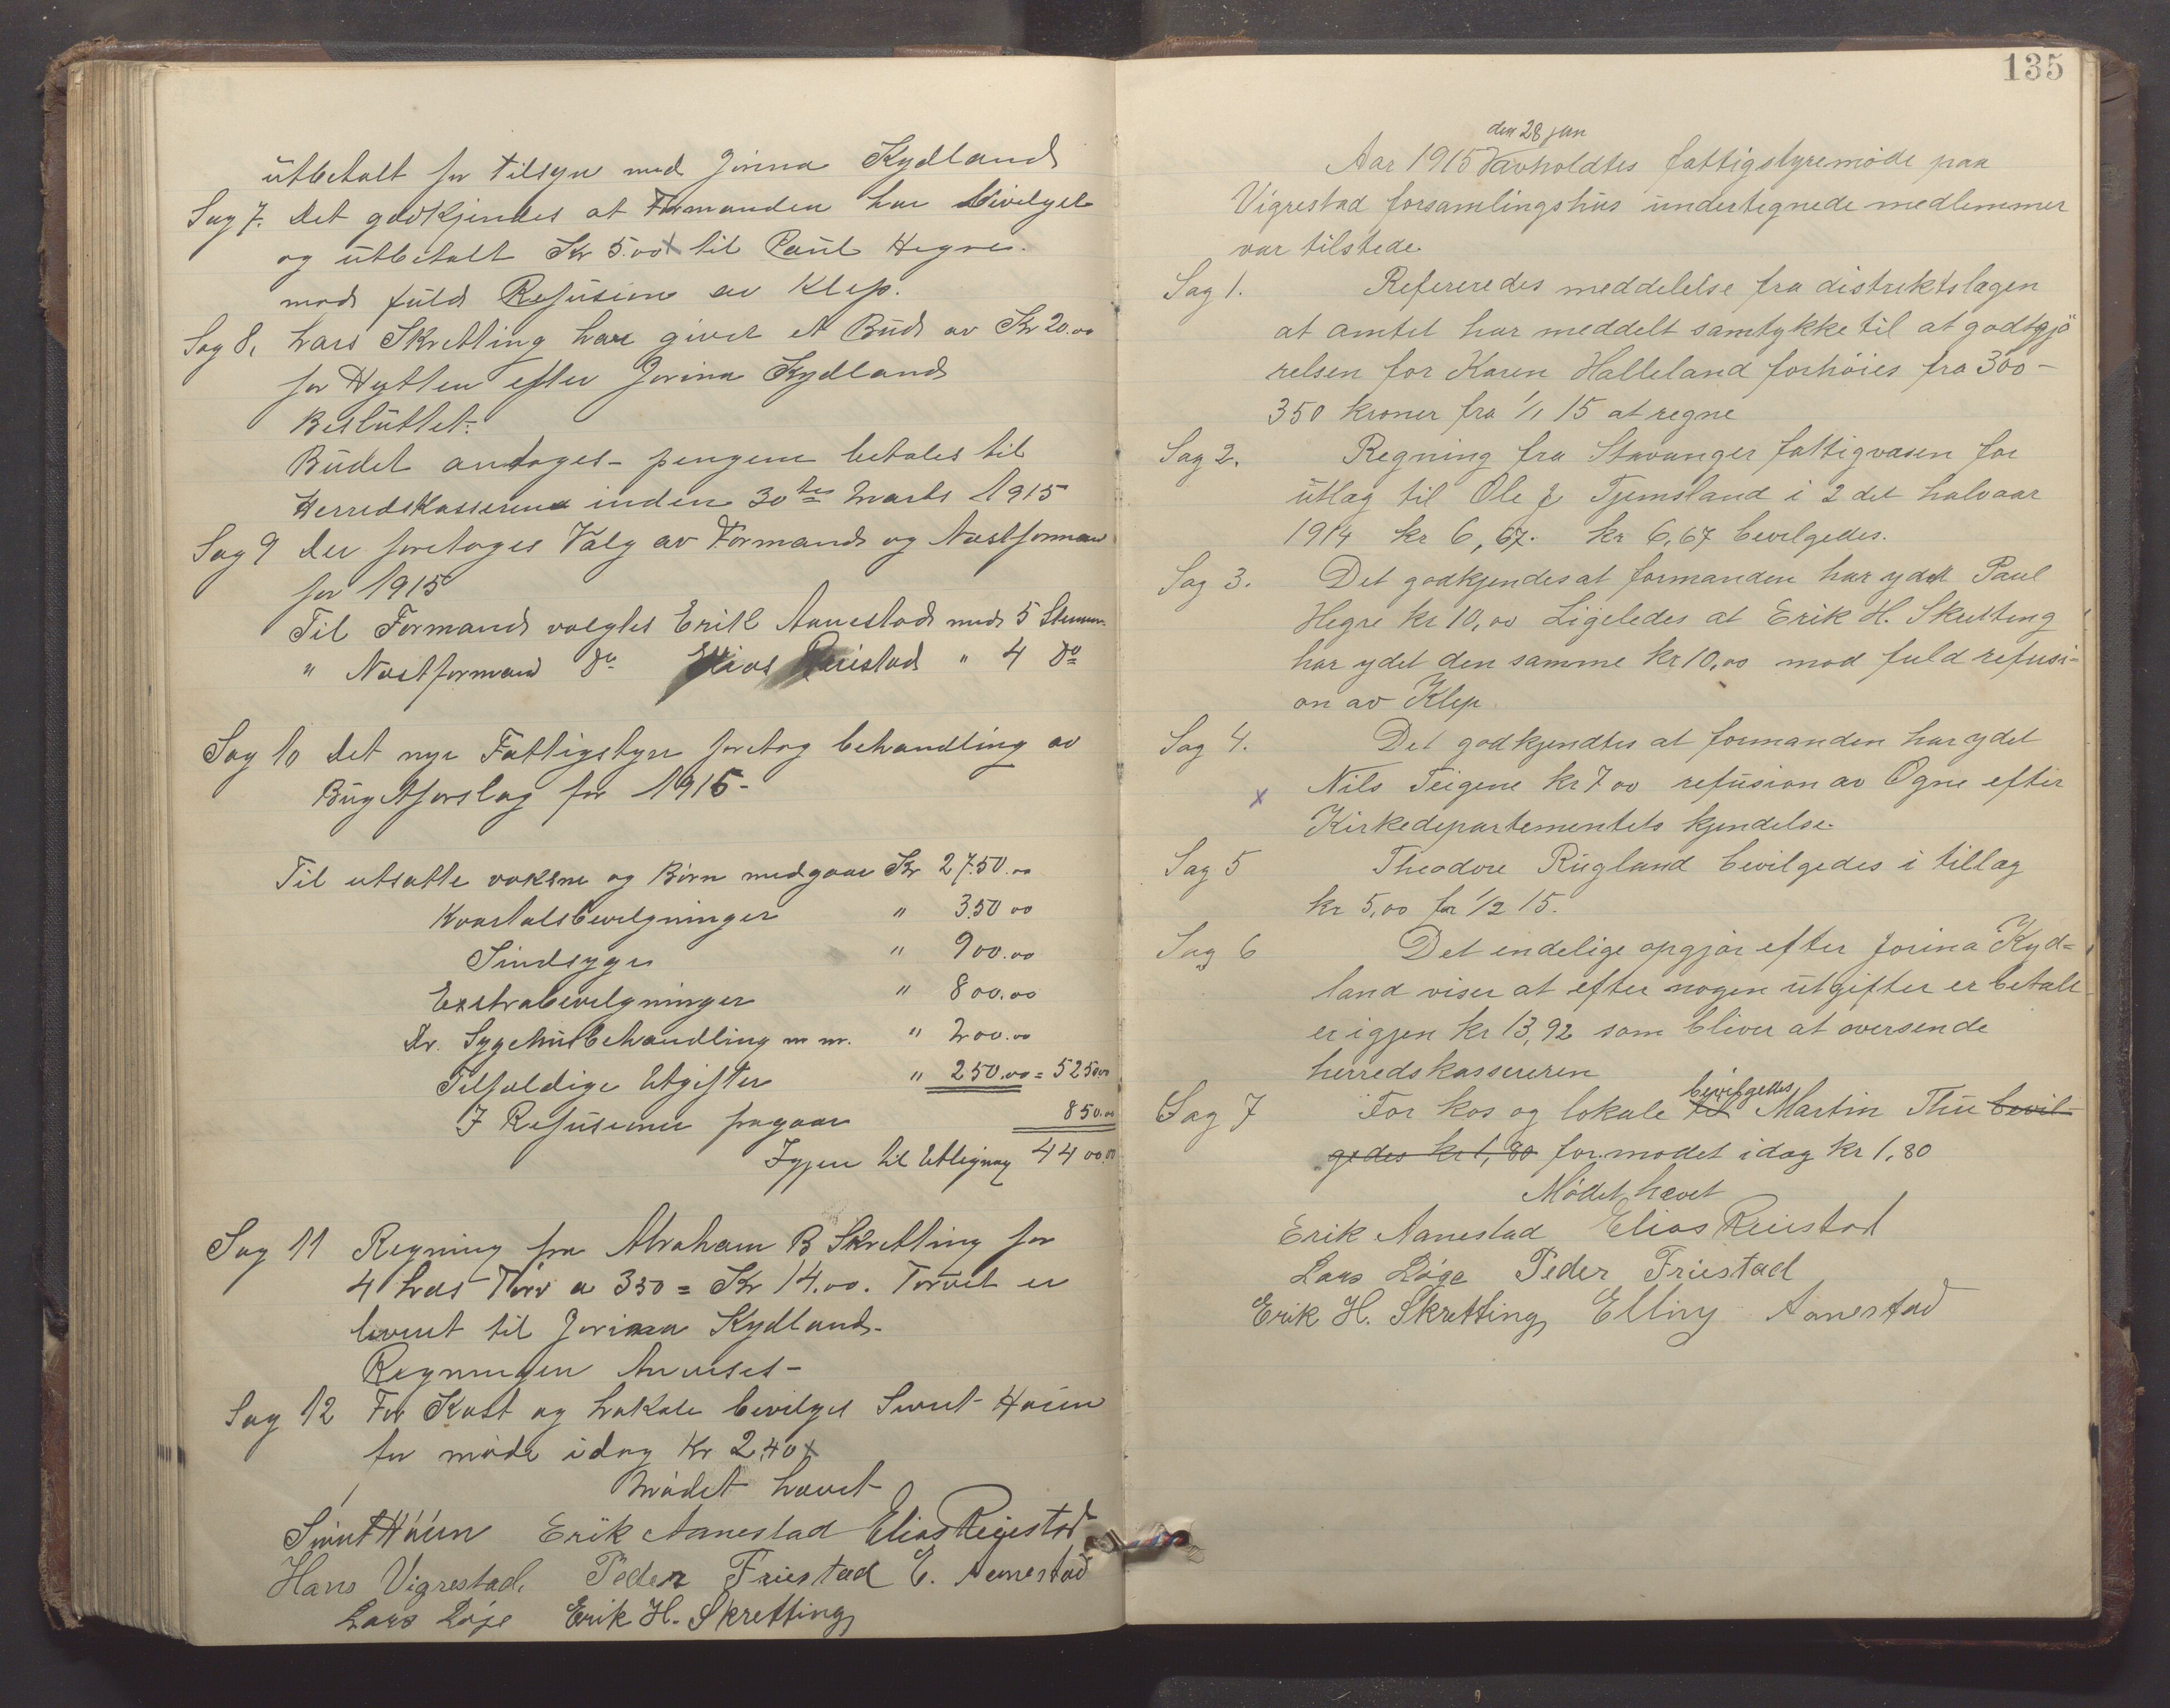 utbetalt for tilsyn med Jorina Kydland
Sag 7. Det godkjendes at Formanden har bevilget
og utbetalt Kr 5.00 x til Paul Hegre.
mod fuld Refusion av Klep.
Sag 8, Lars Skretting har givet et Bud av Kr 20.00
for Hytten efter Jorina Kydland
Besluttet:
Budet antages - pengene betales til
Herredskassereren inden 30te Marts 1915
Sag 9 Der foretages Valg av Formand og Næstformand
for 1915
Til Formand valgtes Erik Aanestad med 5 Stemm.
" Næstformand do Elias Reiestad " 4 do
Sag 10 Det nye Fattigstyre foretog behandling av
Bugetforslag for 1915 -
Til utsatte voksne og Børn medgaar Kr 2750.00
Kvartalsbevilgninger " 350 00
Sindsyge " 900.00
Exstrabevilgninger " 800.00
Dr. Sygehusbehandling m m. " 200.00
Tilfældige Utgifter " 250.00 = 525000
I Refusioner fragaar 850.00
Igjen til Utligning 4400.00
Sag 11 Regning fra Abraham B Skretting for
4 Læs Torv a 350 = Kr 14.00. Torvet er
leveret til Jorina Kydland.
Regningen Anvises -
Sag 12 For Kost og Lokale bevilges Sivert Hauen
for møde idag Kr 2.40 x
Mødet hævet
Sivert Håien Erik Aanestad Elias Reiestad
Hans Vigrestad, Peder Friestad E. Aanestad
Lars Røge Erik H. Skretting
135
den 28 jan
Aar 1915 avholdtes fattigstyremøde paa
Vigrestad forsamlingshus undertegnede medlemmer
var tilstede.
Sag 1. Refereredes meddelelse fra distriktslægen
at amtet har meddelt samtykke til at godtgjö
relsen for Karen Halleland forhøies fra 300 -
350 kroner fra 1/1 15 at regne
Sag 2. Regning fra Stavanger fattigvæsen for
utlæg til Ole J Tjemsland i 2 det halvaar
1914 kr 6,67. kr 6,67 bevilgedes.
Sag 3. Det godkjendes at formanden har ydet Paul
Hegre kr 10,00 Ligeledes at Erik H. Skretting
har ydet den samme kr 10,00 mod fuld refusi=
on av Klep.
Sag 4. Det godkjendtes at formanden har ydet
x Nils Teigene kr 7 00 refusion av Ogne efter
Kirkedepartementets kjendelse.
Sag 5 Theodore Rugland bevilgedes i tillæg
kr 5,00 for 1/2 15.
Sag 6 Det endelige opgjør efter Jorina Kyd=
land viser at efter nogen utgifter er betalt
er igjen kr 13,92 som bliver at oversende
herredskassereren
bevilgedes
Sag 7 For kos og lokale til Martin Thu bevil-
gedes kr 1,80 for mødet idag kr 1,80
Mödet hævet
Erik Aanestad Elias Reiestad
Lars Røge Peder Friestad
Erik H. Skretting Elling Aanestad